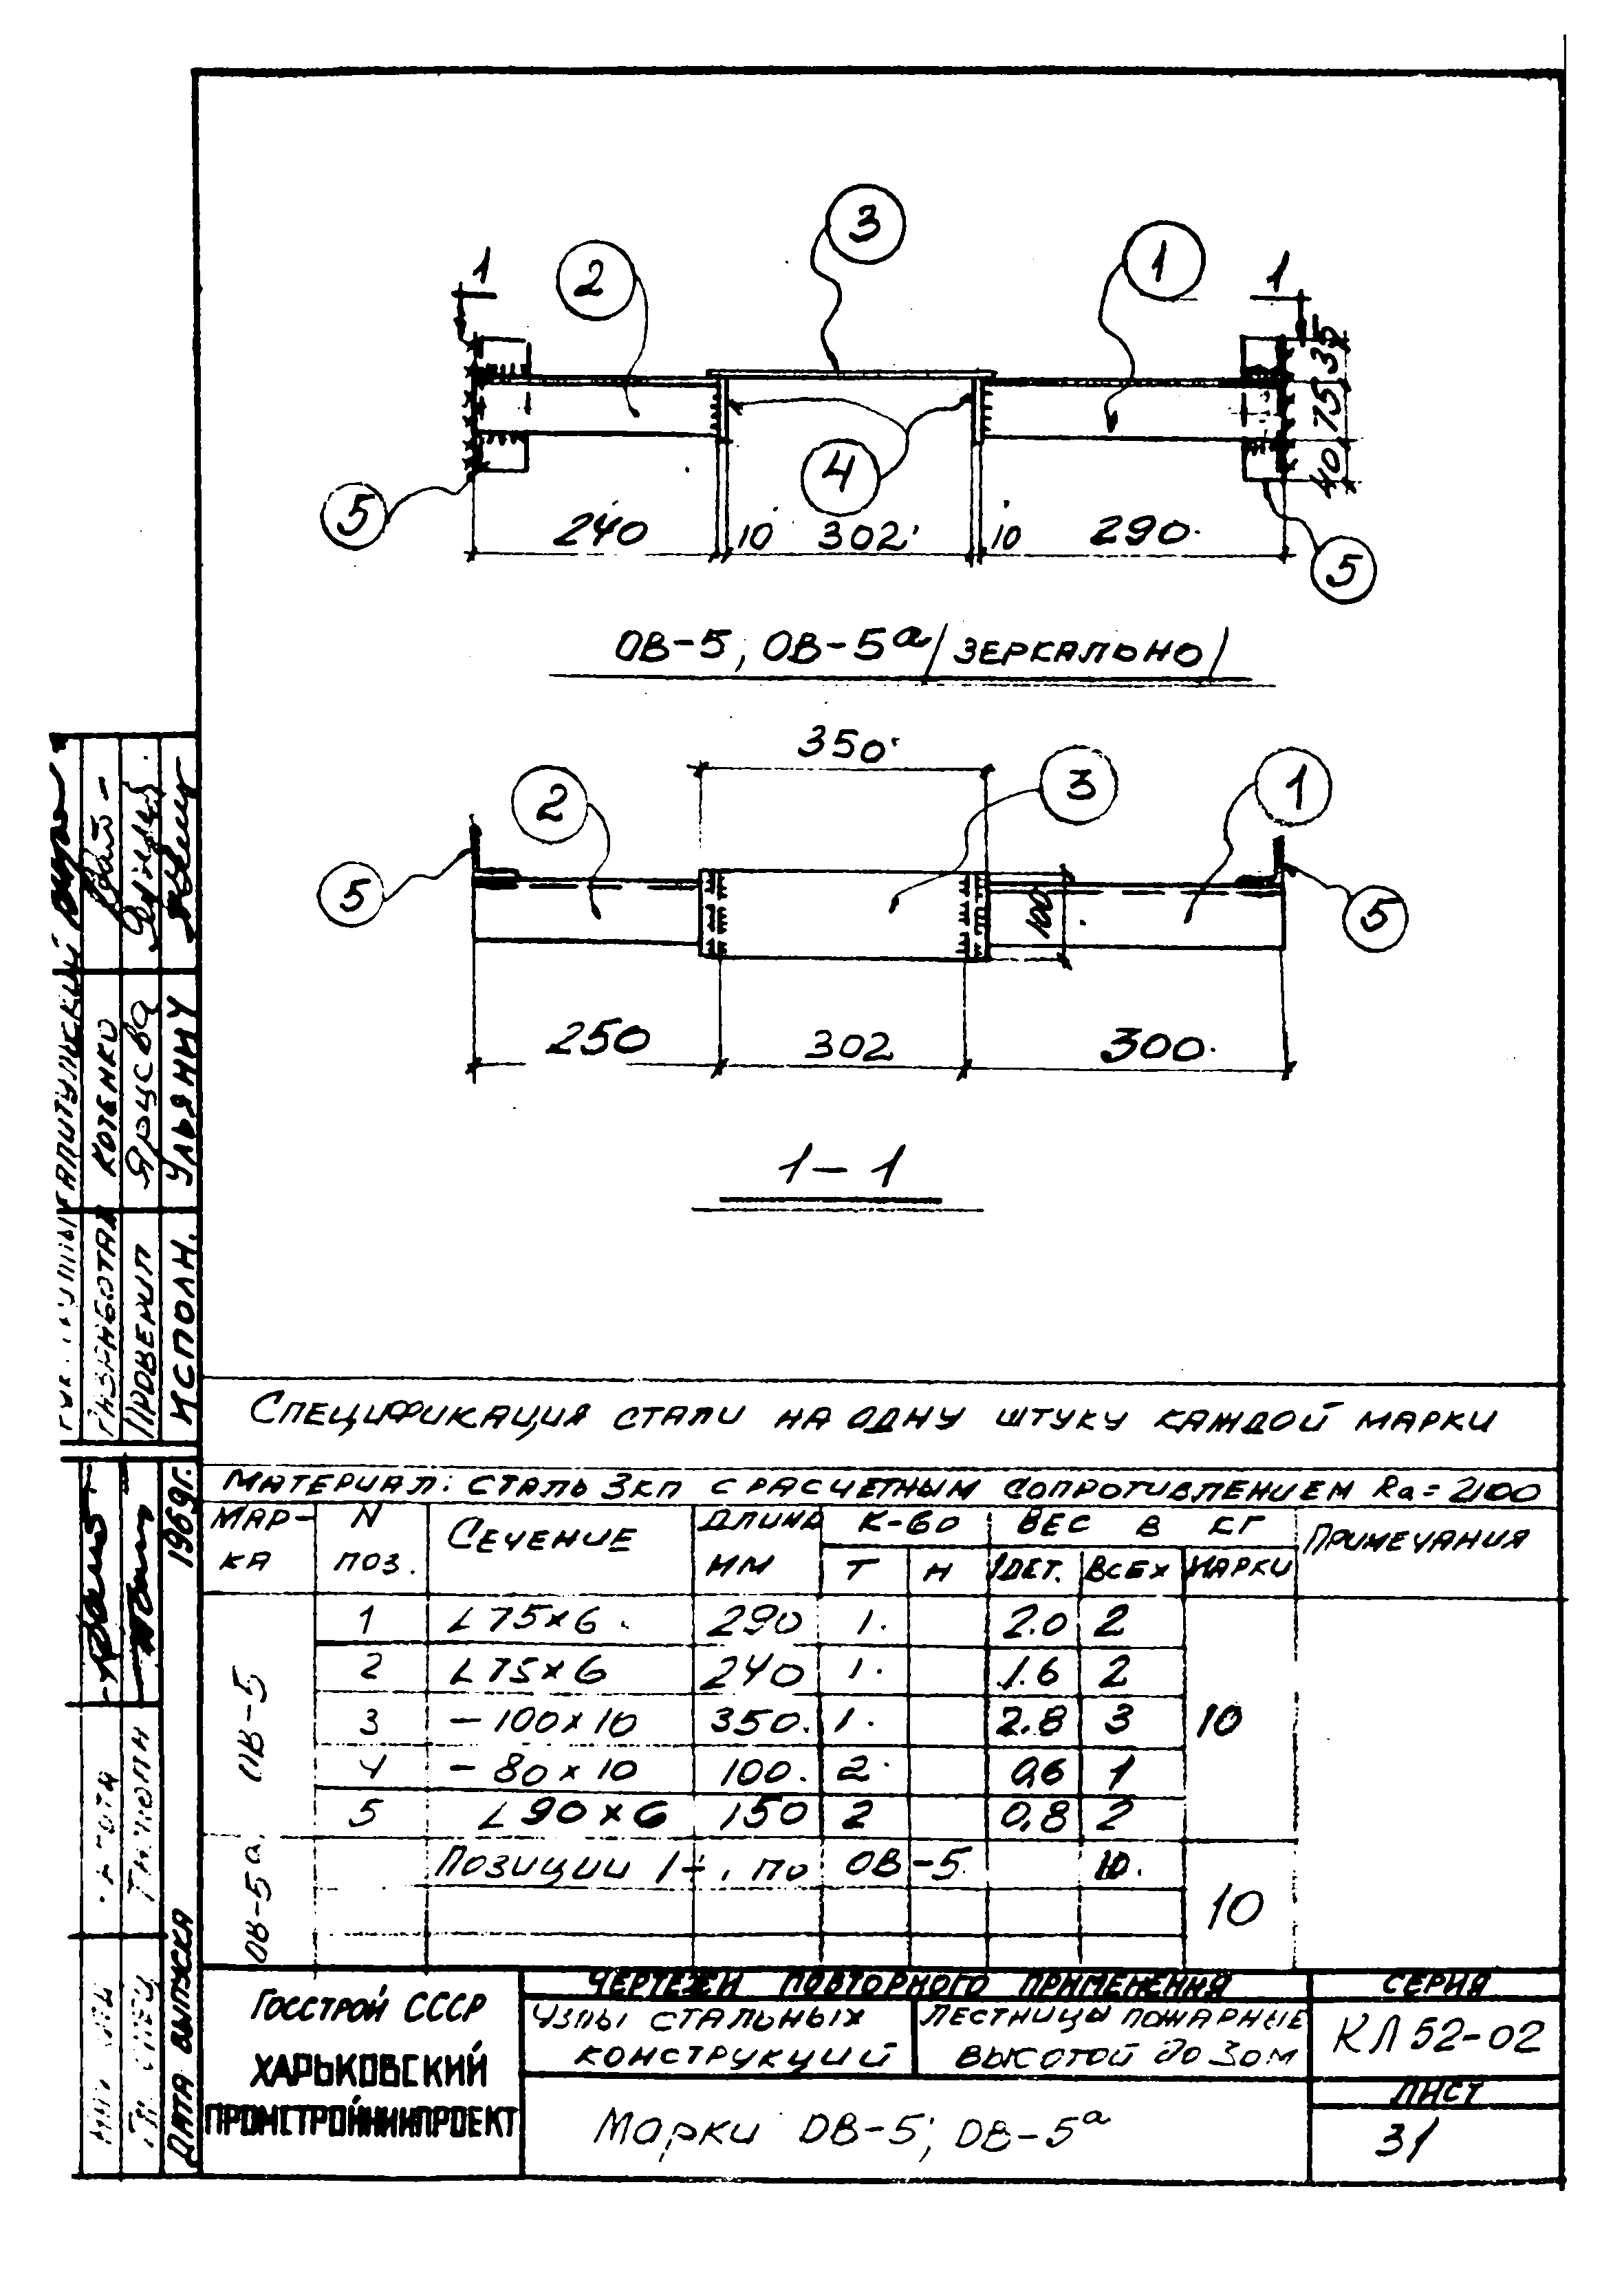 3
1 2 1 1
35
75
40
4
5
240 10 302 10 290
5
ОВ-5, ОВ-5а /ЗЕРКАЛЬНО/
350
2 3 1
5 5
100
250 302 300
1-1
СПЕЦИФИКАЦИЯ СТАЛИ НА ОДНУ ШТУКУ КАЖДОЙ МАРКИ
МАТЕРИАЛ: СТАЛЬ 3КП С РАСЧЕТНЫМ СОПРОТИВЛЕНИЕМ Rа = 2100
МАР-КА N ПОЗ. СЕЧЕНИЕ ДЛИНА ММ К-ВО ВЕС В КГ ПРИМЕЧАНИЯ
Т Н 1ДЕТ. ВСЕХ МАРКИ
ОВ-5
1 L 75×6 290 1. 2.0 2
2 L 75×6 240 1. 1.6 2
3 - 100×10 350. 1. 2.8 3 10
4 - 80×10 100. 2. 0,6 1
5 L 90×6 150 2 0,8 2
ОВ-5а
ПОЗИЦИИ ПО ОВ-5 10.
10
ГОССТРОЙ СССР
ХАРЬКОВСКИЙ
ПРОМСТРОЙНИИПРОЕКТ
ЧЕРТЕЖИ ПОВТОРНОГО ПРИМЕНЕНИЯ
УЗЛЫ СТАЛЬНЫХ
КОНСТРУКЦИЙ
ЛЕСТНИЦЫ ПОЖАРНЫЕ
ВЫСОТОЙ ДО 30М
СЕРИЯ
КЛ 52-02
Марки ОВ-5, ОВ-5а
ЛИСТ
31
РАЗРАБОТАЛ КОТЕНКО
ПРОВЕРИЛ ЯРЦЕВА
ИСПОЛН. УЛЬЯНИЧ
ДАТА ВЫПУСКА 1969г.